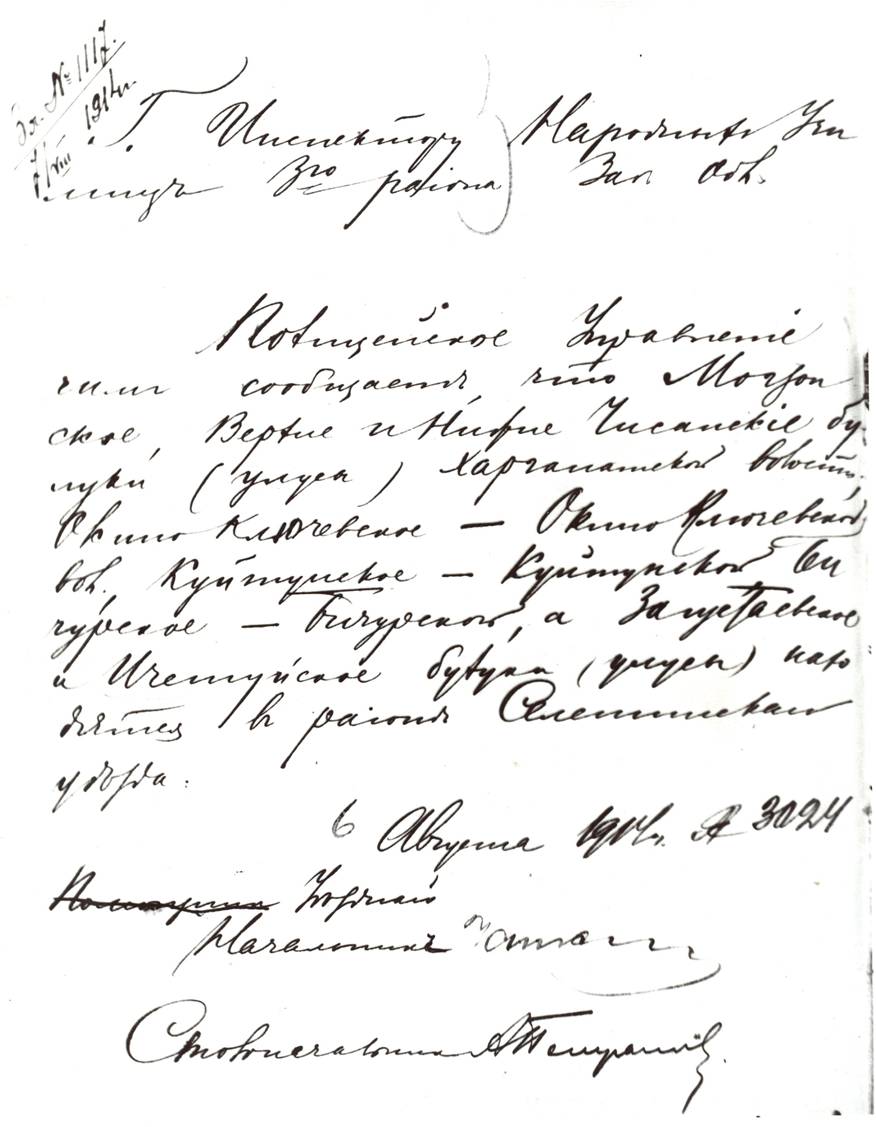 Вх. № 1117.
7/VIII 1914 г.
Г. Инспектору Народныхъ Учи
лищъ 3го района Заб. Обл.
Полицейское Управленіе
симъ сообщаетъ, что Могзон
ское, Верхне и Нижне Чисанскіе бу-
луки (улусы) Харганатской волости,
Окино Ключевское — Окино Ключевской
вол. Куйтунское — Куйтунской Би
чурское — Бичурской, а Загустаевское
и Ичетуйское булуки (улусы) нахо
дятся в районѣ Селенгинскаго
уѣзда.
6 Августа 1914 г. № 3024
Уѣздный
Начальникъ
Столоначальникъ